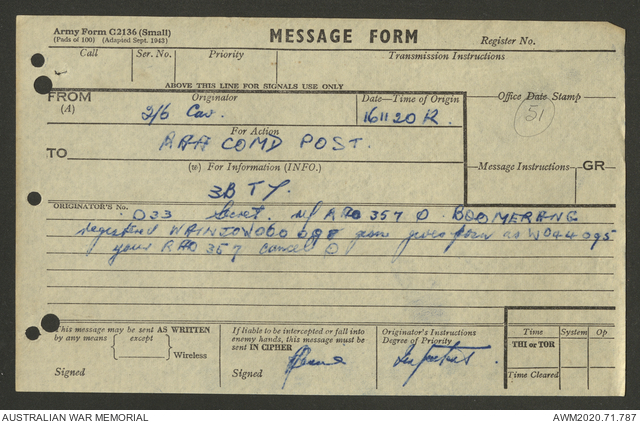 Army Form C2136 (Small)
(Pads of 100) (Adapted Sept. 1943)
MESSAGE FORM
Register No.
Call
Ser. No.
Priority
Transmission Instructions
ABOVE THIS LINE FOR SIGNALS USE ONLY
FROM
(A)
Originator
2/6 Cav.
Date—Time of Origin
161120 K.
Office Date Stamp
51
For Action
TO
RAA COMD POST.
(w) For Information (INFO.)
Message Instructions
GR
3 BTY.
ORIGINATOR'S No.
O33 Secret. RAO 357 O BOOMERANG
registered as W044095
your RAO 357 cancel O
This message may be sent AS WRITTEN
by any means
except
Wireless
Signed
If liable to be intercepted or fall into
enemy hands, this message must be
sent IN CIPHER
Signed
Originator's Instructions
Degree of Priority
Time
System
Op
THI or TOR
Time Cleared
AUSTRALIAN WAR MEMORIAL
AWM2020.71.787